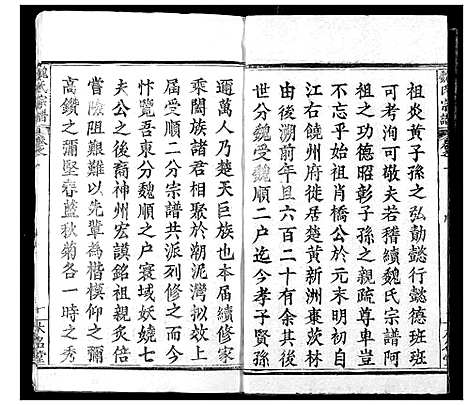 祖炎黃子孫之弘勛懿行懿德班班
可考洵可敬夫若稽續魏氏宗譜阿
祖之功德昭彰子孫之親疏尊卑豈
可忽諸本祖肖橋公於明洪武元年
江右饒州府徙楚黃新洲棗茨林
居住溯前年且六百二十有餘矣自
世分魏受魏順二户迄今孝子賢孫
邇萬人乃楚天巨族也本屆續修家
乘闔族諸君相聚於潮泥灣拟效上
屆受順二分宗譜共派列修之而合
忭覽吾東分魏順之户寰域妖嬈七
夫公之後裔神州宏謨銘祖親炙倍
嘗險阻艱難以先輩為楷模仰之彌
高鑽之彌堅春蘭秋菊各一時之秀
魏氏宗譜
卷之